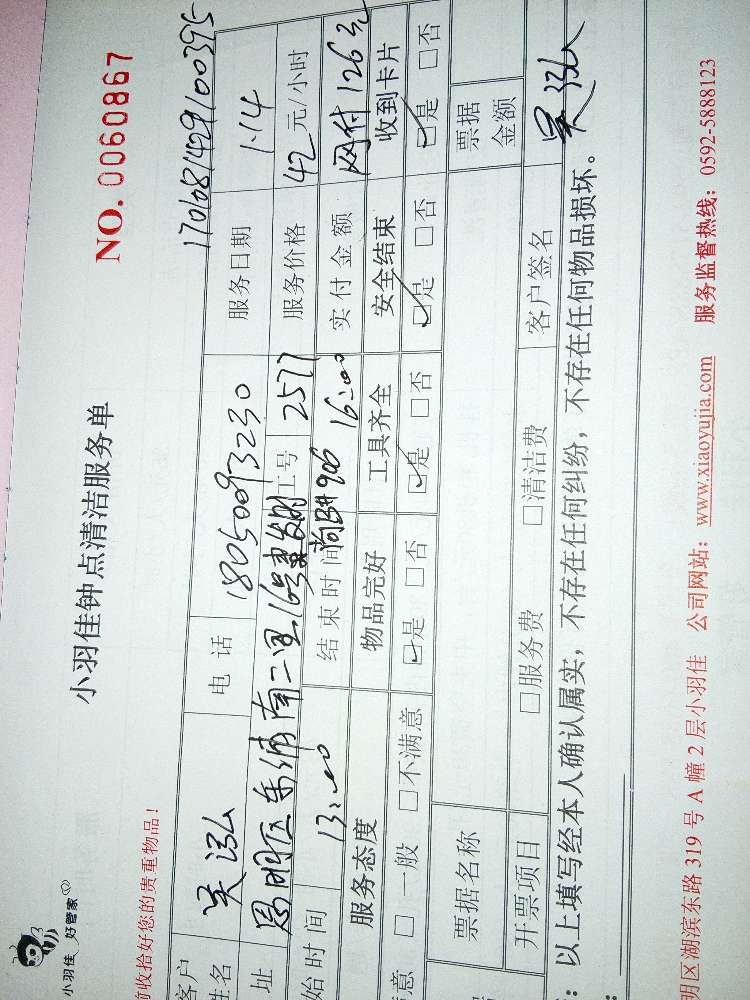 小羽佳 好管家
NO. 0060867
小羽佳钟点清洁服务单
前收拾好您的贵重物品！
1701081429100395
客户姓名 吴泓 电话 18050093230 服务日期 1.14
址 思明区 南二里16号 906 工号 2577 服务价格 42元/小时
始时间 13:00 结束时间 16:00 实付金额 网付126元
服务态度 物品完好 工具齐全 安全结束 收到卡片
意 □一般 □不满意 ☑是 □否 ☑是 □否 ☑是 □否 ☑是 □否
票据名称 票据金额
开票项目 □服务费 □清洁费 客户签名 吴泓
：以上填写经本人确认属实，不存在任何纠纷，不存在任何物品损坏。
明区湖滨东路 319 号 A 幢 2 层小羽佳 公司网站：www.xiaoyujia.com 服务监督热线：0592-5888123